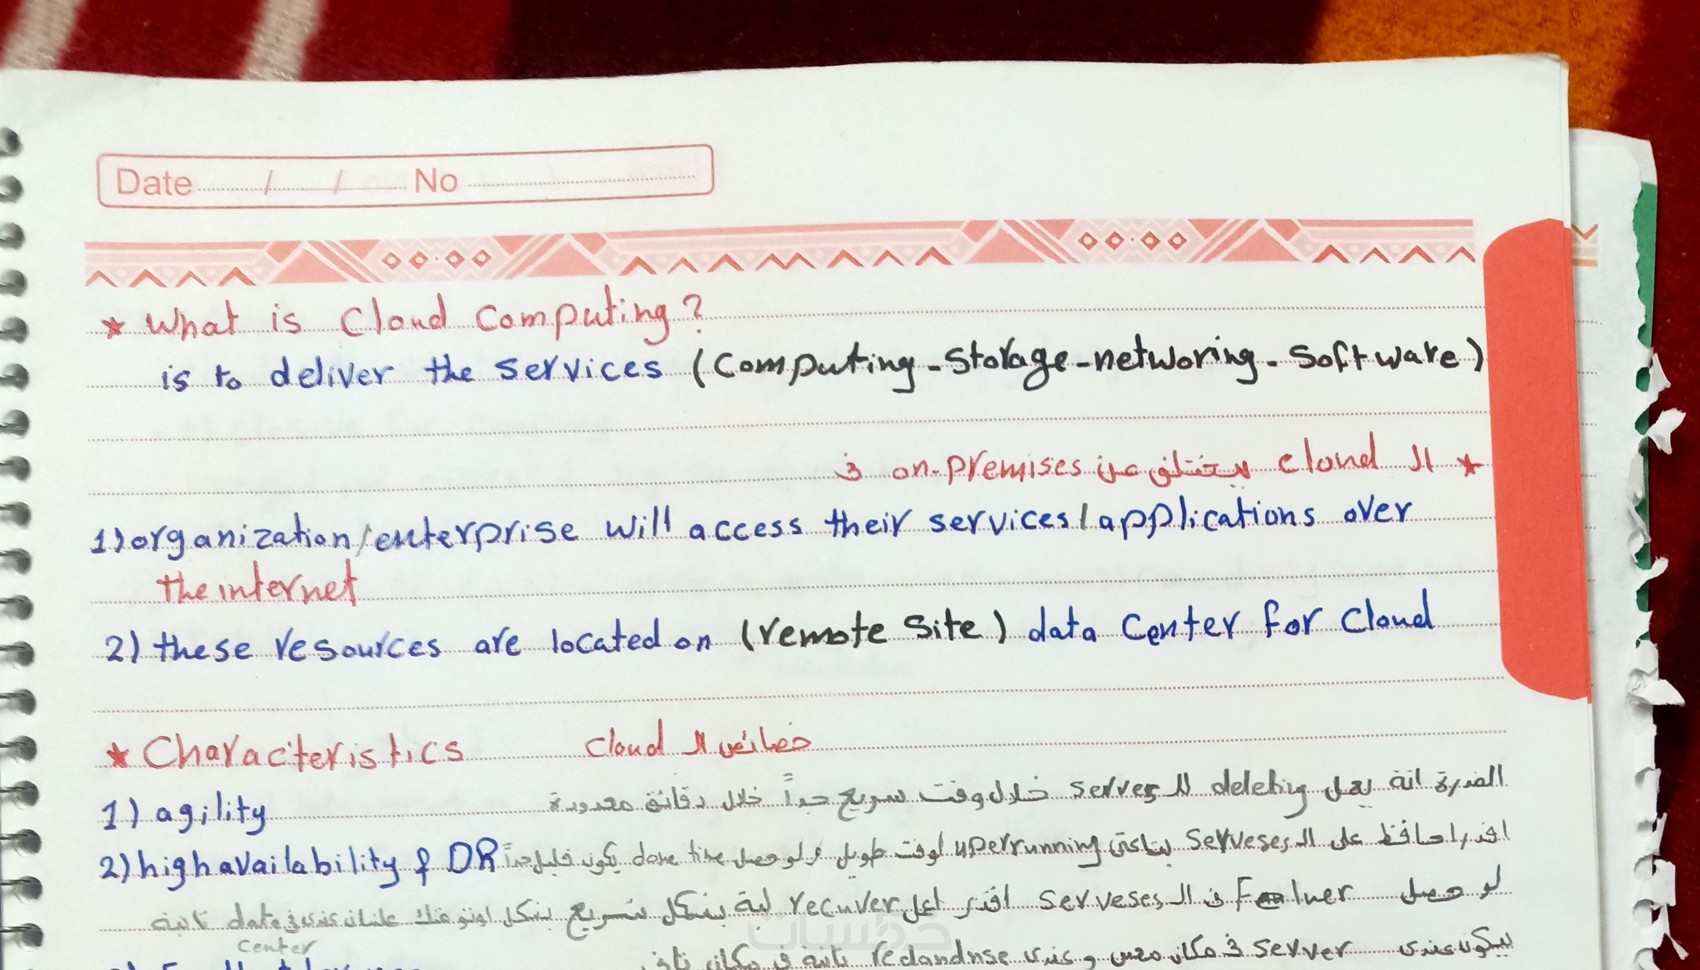 Date / / No
* What is Cloud Computing?
is to deliver the services (Computing - Storage - networing - Software)
* الـ cloud يختلف عن on-premises في
1) organization/enterprise will access their services/applications over
the internet
2) these resources are located on (remote site) data Center for Cloud
* Characteristics خصائص الـ Cloud
1) agility القدرة انة يعمل deleting للـ serves خلال وقت سريع جداً خلال دقائق معدودة
2) high availability & DR اقدر احافظ على الـ Serveses بتاعتى uperrunning لوقت طويل و لو حصل done time يكون قليل جداً
لو حصل في الـ serveses اقدر اعمل recuver لية بشكل سريع بشكل عشان عندى date تانية
center
بيكون عندى server في مكان معين و عندى redandnse تانية في مكان تانى